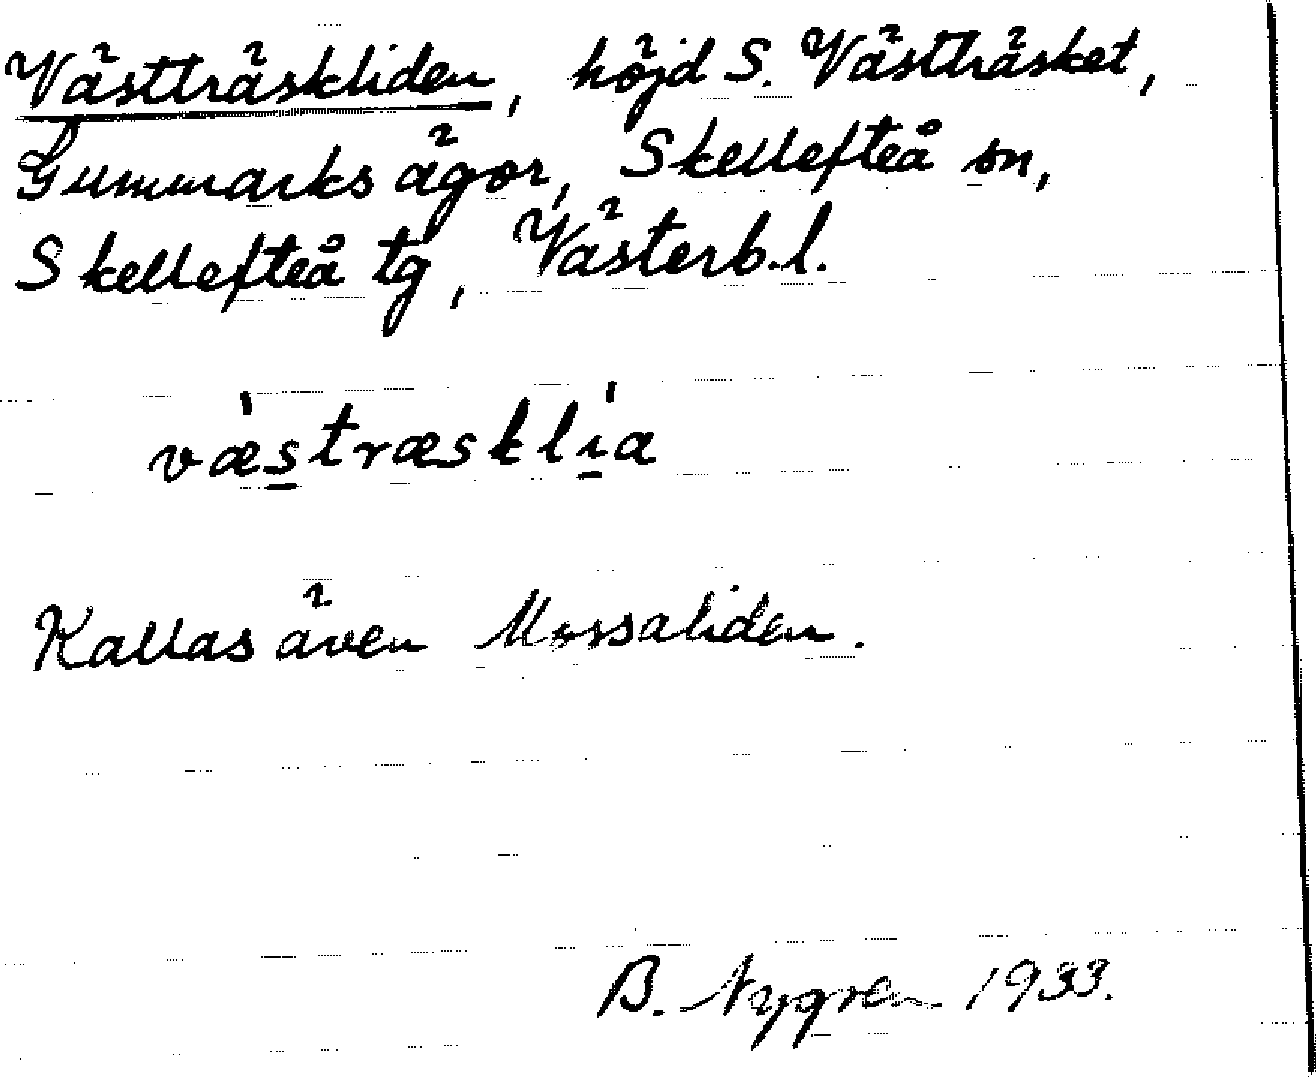 Västträskliden, höjd S. Västträsket,
Gummarks ägor, Skellefteå sn,
Skellefteå tg, Västerb.l.
væ̀stræsklìa
Kallas även Mossaliden.
B. Nygren 1933.